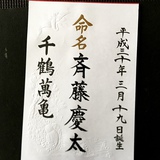 平成二十年三月十九日誕生
命名 斉藤慶太
千鶴萬亀